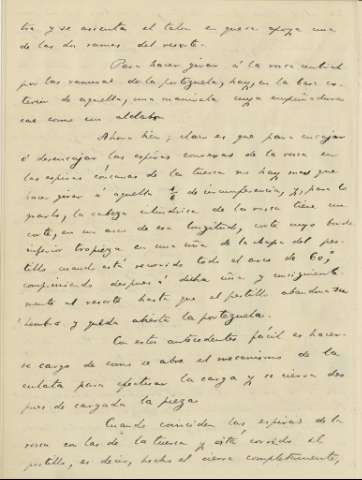 tra y se asienta el talon en que se apoya una
de las dos ramas del resorte.
Para hacer girar á la rosca central
por las ranuras de la portezuela, hay, en la base ex-
terior de aquella, una manivela cuya empuñadura
cae como un aldabon
Ahora bien, claro es que para encajar
ó desencajar las espiras convexas de la rosca en
las espiras cóncavas de la tuerca no hay mas que
hacer girar á aquella 1/6 de circunferencia, y, para lo
grarlo, la cabeza cilindrica de la rosca tiene un
corte, en un arco de esa longitud, corte cuyo borde
inferior tropieza en una uña de la chapa del pes-
tillo cuando está recorrido todo el arco de 60°,
comprimiendo despues á dicha uña y consiguiente
mente al resorte hasta que el pestillo abandona su
hembra y queda abierta la portezuela.
Con estos antecedentes fácil es hacer-
se cargo de como se abre el mecanismo de la
culata para efectuar la carga y se cierra des
pues de cargada la pieza
Cuando coinciden las espiras de la
rosca con las de la tuerca y está corrido el
pestillo, es decir, hecho el cierre completamente,